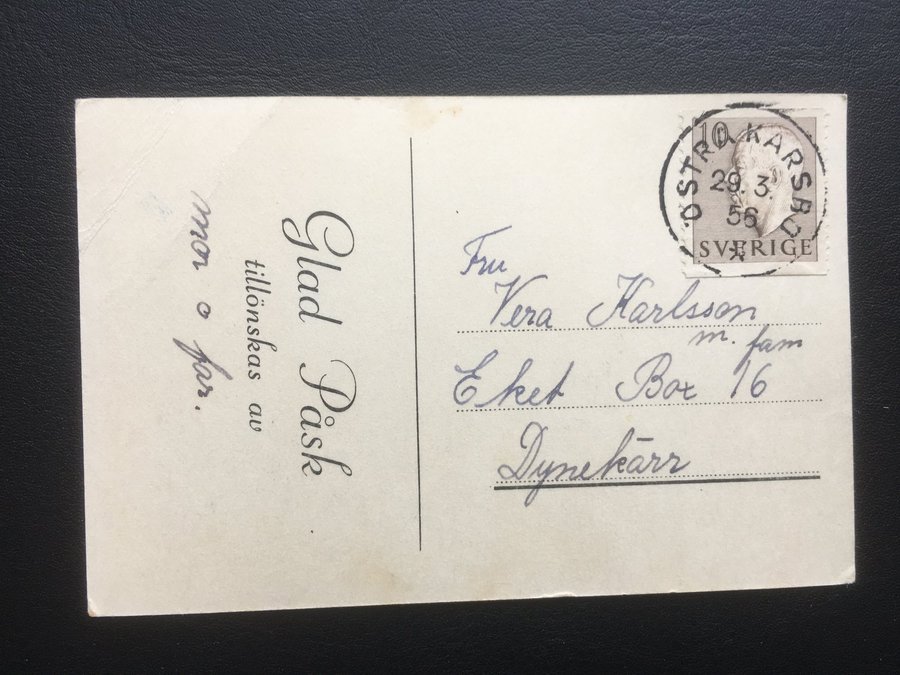 Glad Påsk
tillönskas av
mor o far.
10
ÖSTRA KARSBO
29.3.
56
SVERIGE
Fru
Vera Karlsson
m. fam
Eket Box 16
Dynekärr